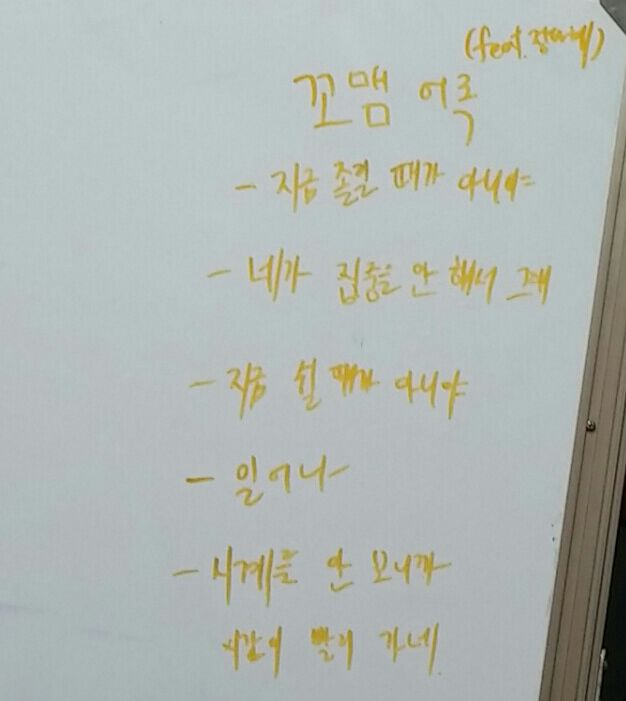 (feat.
꼬맴 어록
- 지금 졸릴 때가 아니야
- 네가 집중을 안 해서 그래
- 지금 쉴 때가 아니야
- 일어나
- 시계를 안 보니까
시간이 빨리 가네